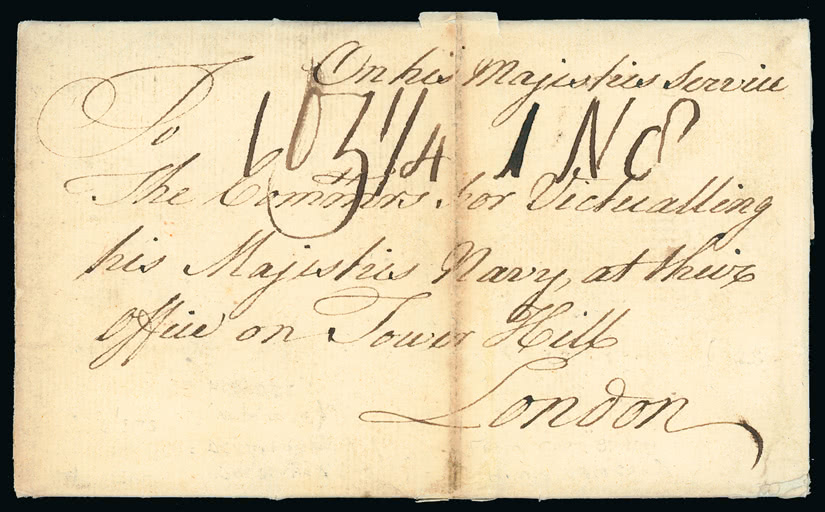 On his Majesties Service
To
1 N 8
The Commrs for Victualling
his Majesties Navy, at their
Office on Tower Hill
London